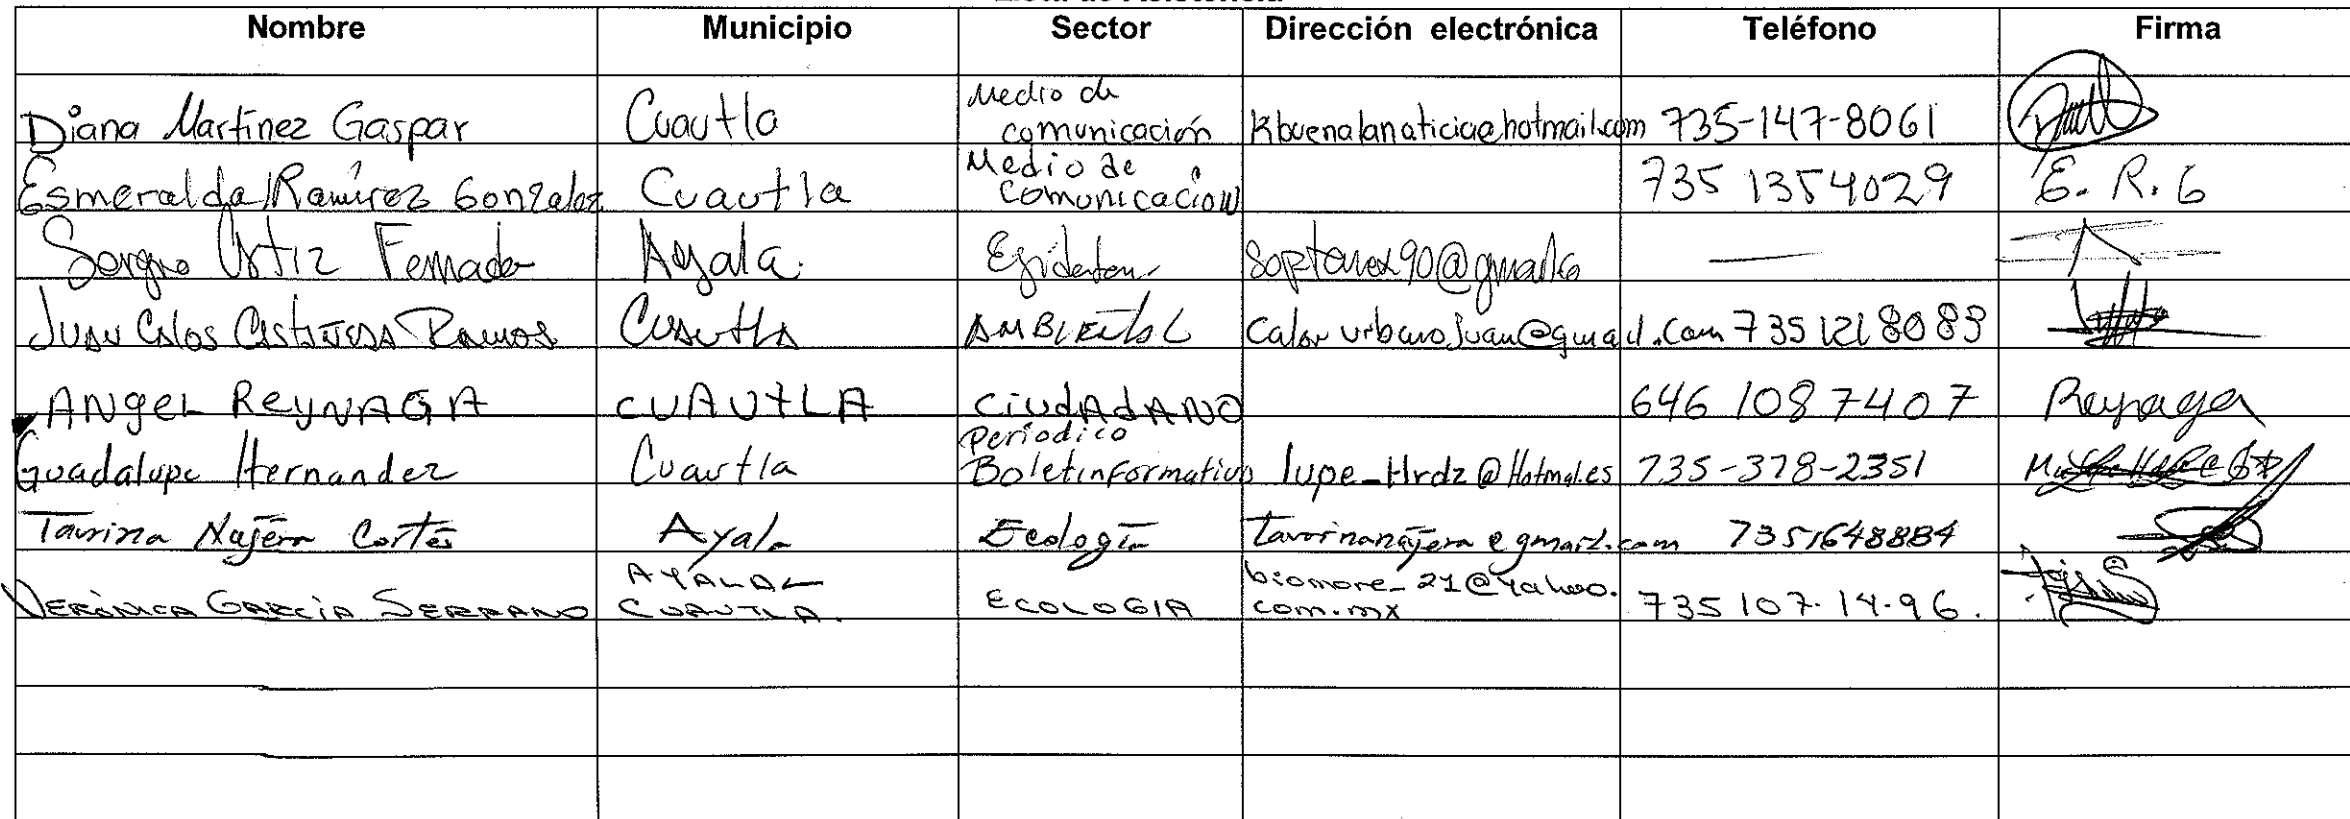 Nombre Municipio Sector Dirección electrónica Teléfono Firma
Diana Martinez Gaspar Cuautla Medio de comunicación kbuenalanoticia@hotmail.com 735-147-8061
Esmeralda Ramírez Gonzalez Cuautla Medio de comunicacion 735 1354029 E. R. G
Ortiz Ayala.
Juan Calos Castañeda Ramos Cuautla AMBIENTAL Calor urbano juan@gmail.com 735 121 8083
ANgel ReyNAGA CUAUtLA CiUdAdANO 646 108 7407 Reynaga
Guadalupe Hernandez Cuautla Periodico Boletinformativo lupe_Hrdz@Hotmal.es 735-378-2351
Taurina Najera Cortés Ayala Ecología 7351648884
VERÓNICA GARCÍA SERRANO AYALA CUAUTLA. ECOLOGIA biomore_21@yahoo.com.mx 735 107.14.96.